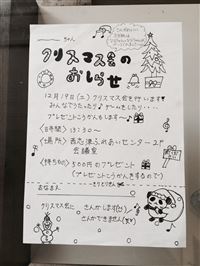 ちゃん
クリスマス会の
おしらせ
12月19日(土)クリスマス会を行います
みんなでうたったり♪ゲームをしたり・・・
プレゼントこうかんもします〜♪
〈日時〉13:30〜
〈場所〉西志津ふれあいセンター2F
会議室
〈持ちもの〉300円のプレゼント
(プレゼントこうかんをするので)
きりとりせん
おなまえ
クリスマス会に
さんかします
さんかできません